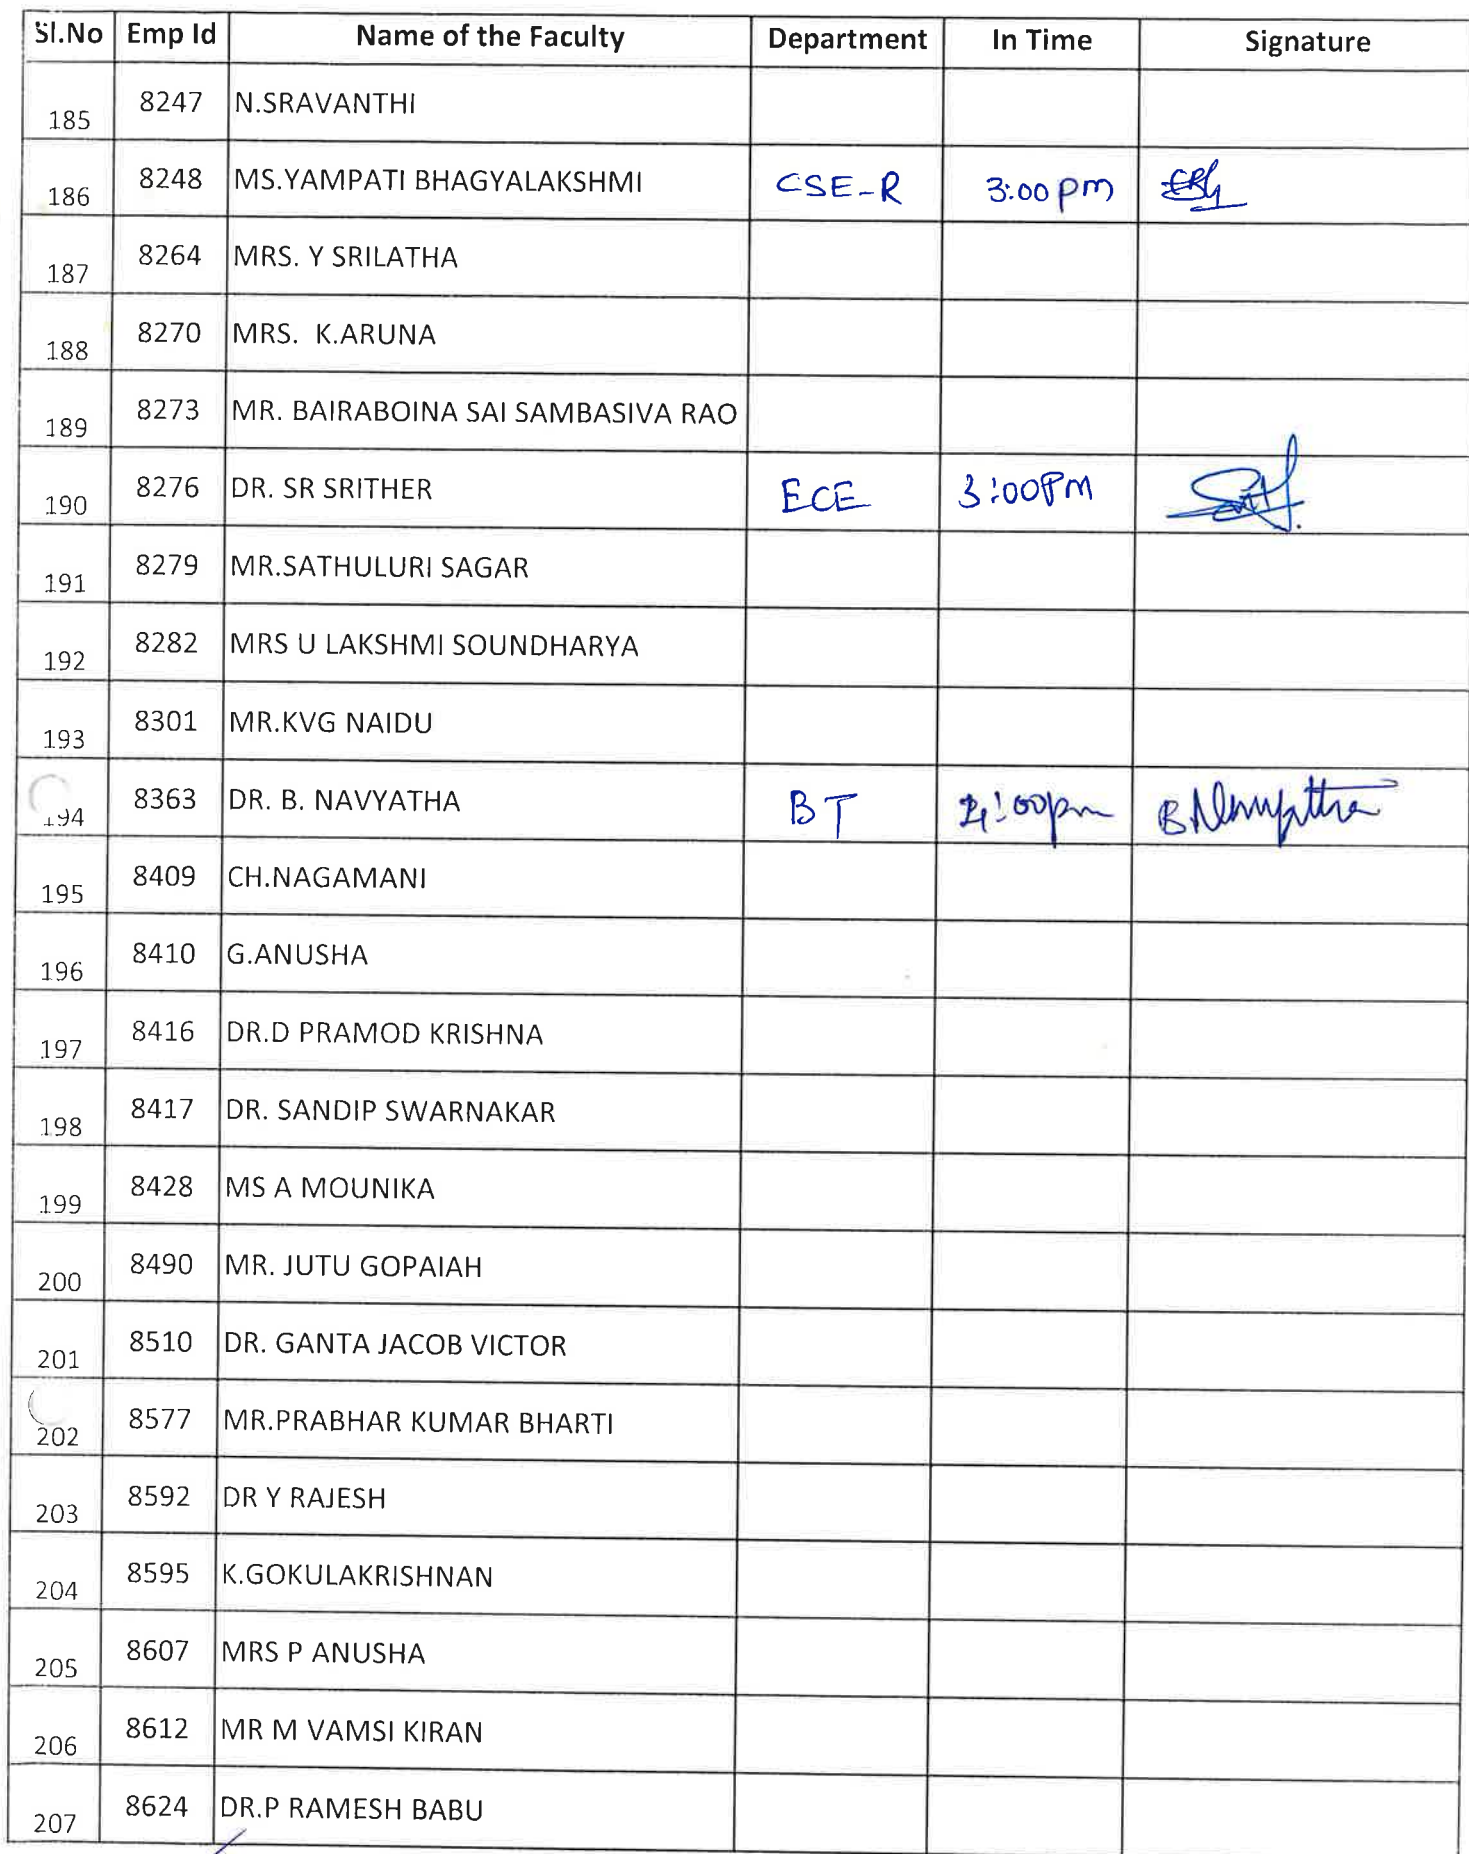 Sl.No Emp Id Name of the Faculty Department In Time Signature
185 8247 N.SRAVANTHI
186 8248 MS.YAMPATI BHAGYALAKSHMI CSE-R 3:00 pm
187 8264 MRS. Y SRILATHA
188 8270 MRS. K.ARUNA
189 8273 MR. BAIRABOINA SAI SAMBASIVA RAO
190 8276 DR. SR SRITHER ECE 3:00PM
191 8279 MR.SATHULURI SAGAR
192 8282 MRS U LAKSHMI SOUNDHARYA
193 8301 MR.KVG NAIDU
194 8363 DR. B. NAVYATHA BT :00pm
195 8409 CH.NAGAMANI
196 8410 G.ANUSHA
197 8416 DR.D PRAMOD KRISHNA
198 8417 DR. SANDIP SWARNAKAR
199 8428 MS A MOUNIKA
200 8490 MR. JUTU GOPAIAH
201 8510 DR. GANTA JACOB VICTOR
202 8577 MR.PRABHAR KUMAR BHARTI
203 8592 DR Y RAJESH
204 8595 K.GOKULAKRISHNAN
205 8607 MRS P ANUSHA
206 8612 MR M VAMSI KIRAN
207 8624 DR.P RAMESH BABU